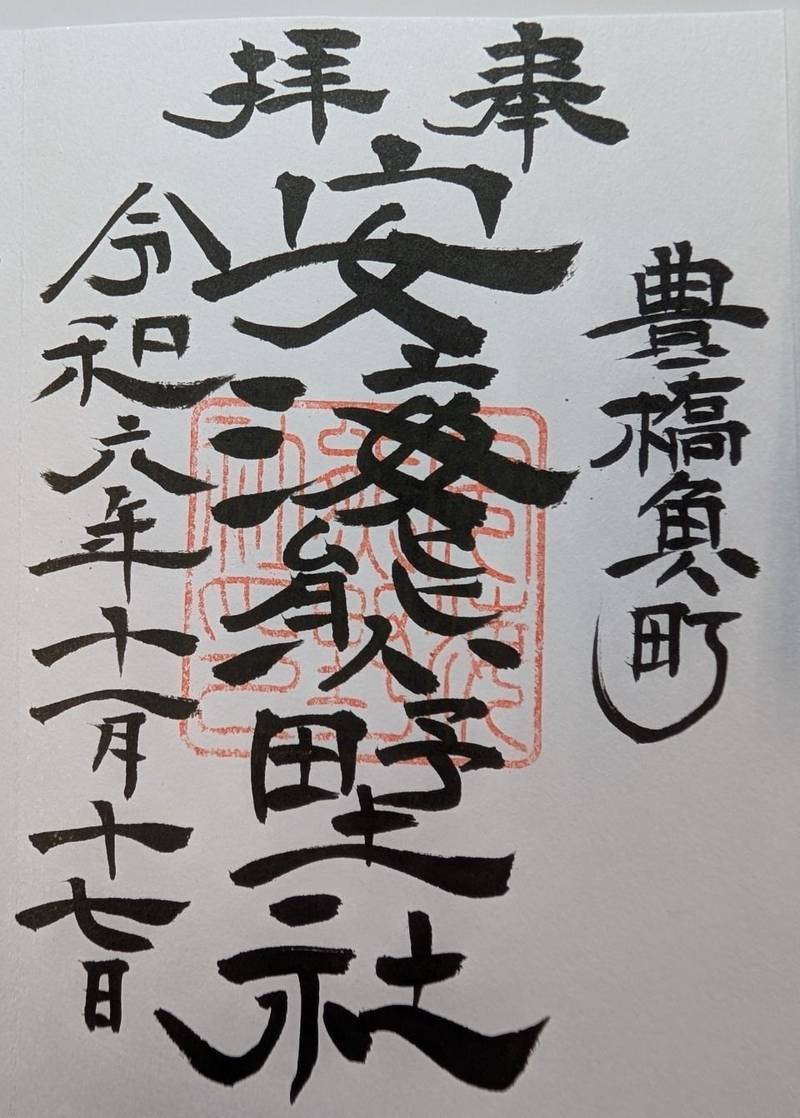 奉拝
豊橋魚町
安海熊野社
令和六年十一月十七日